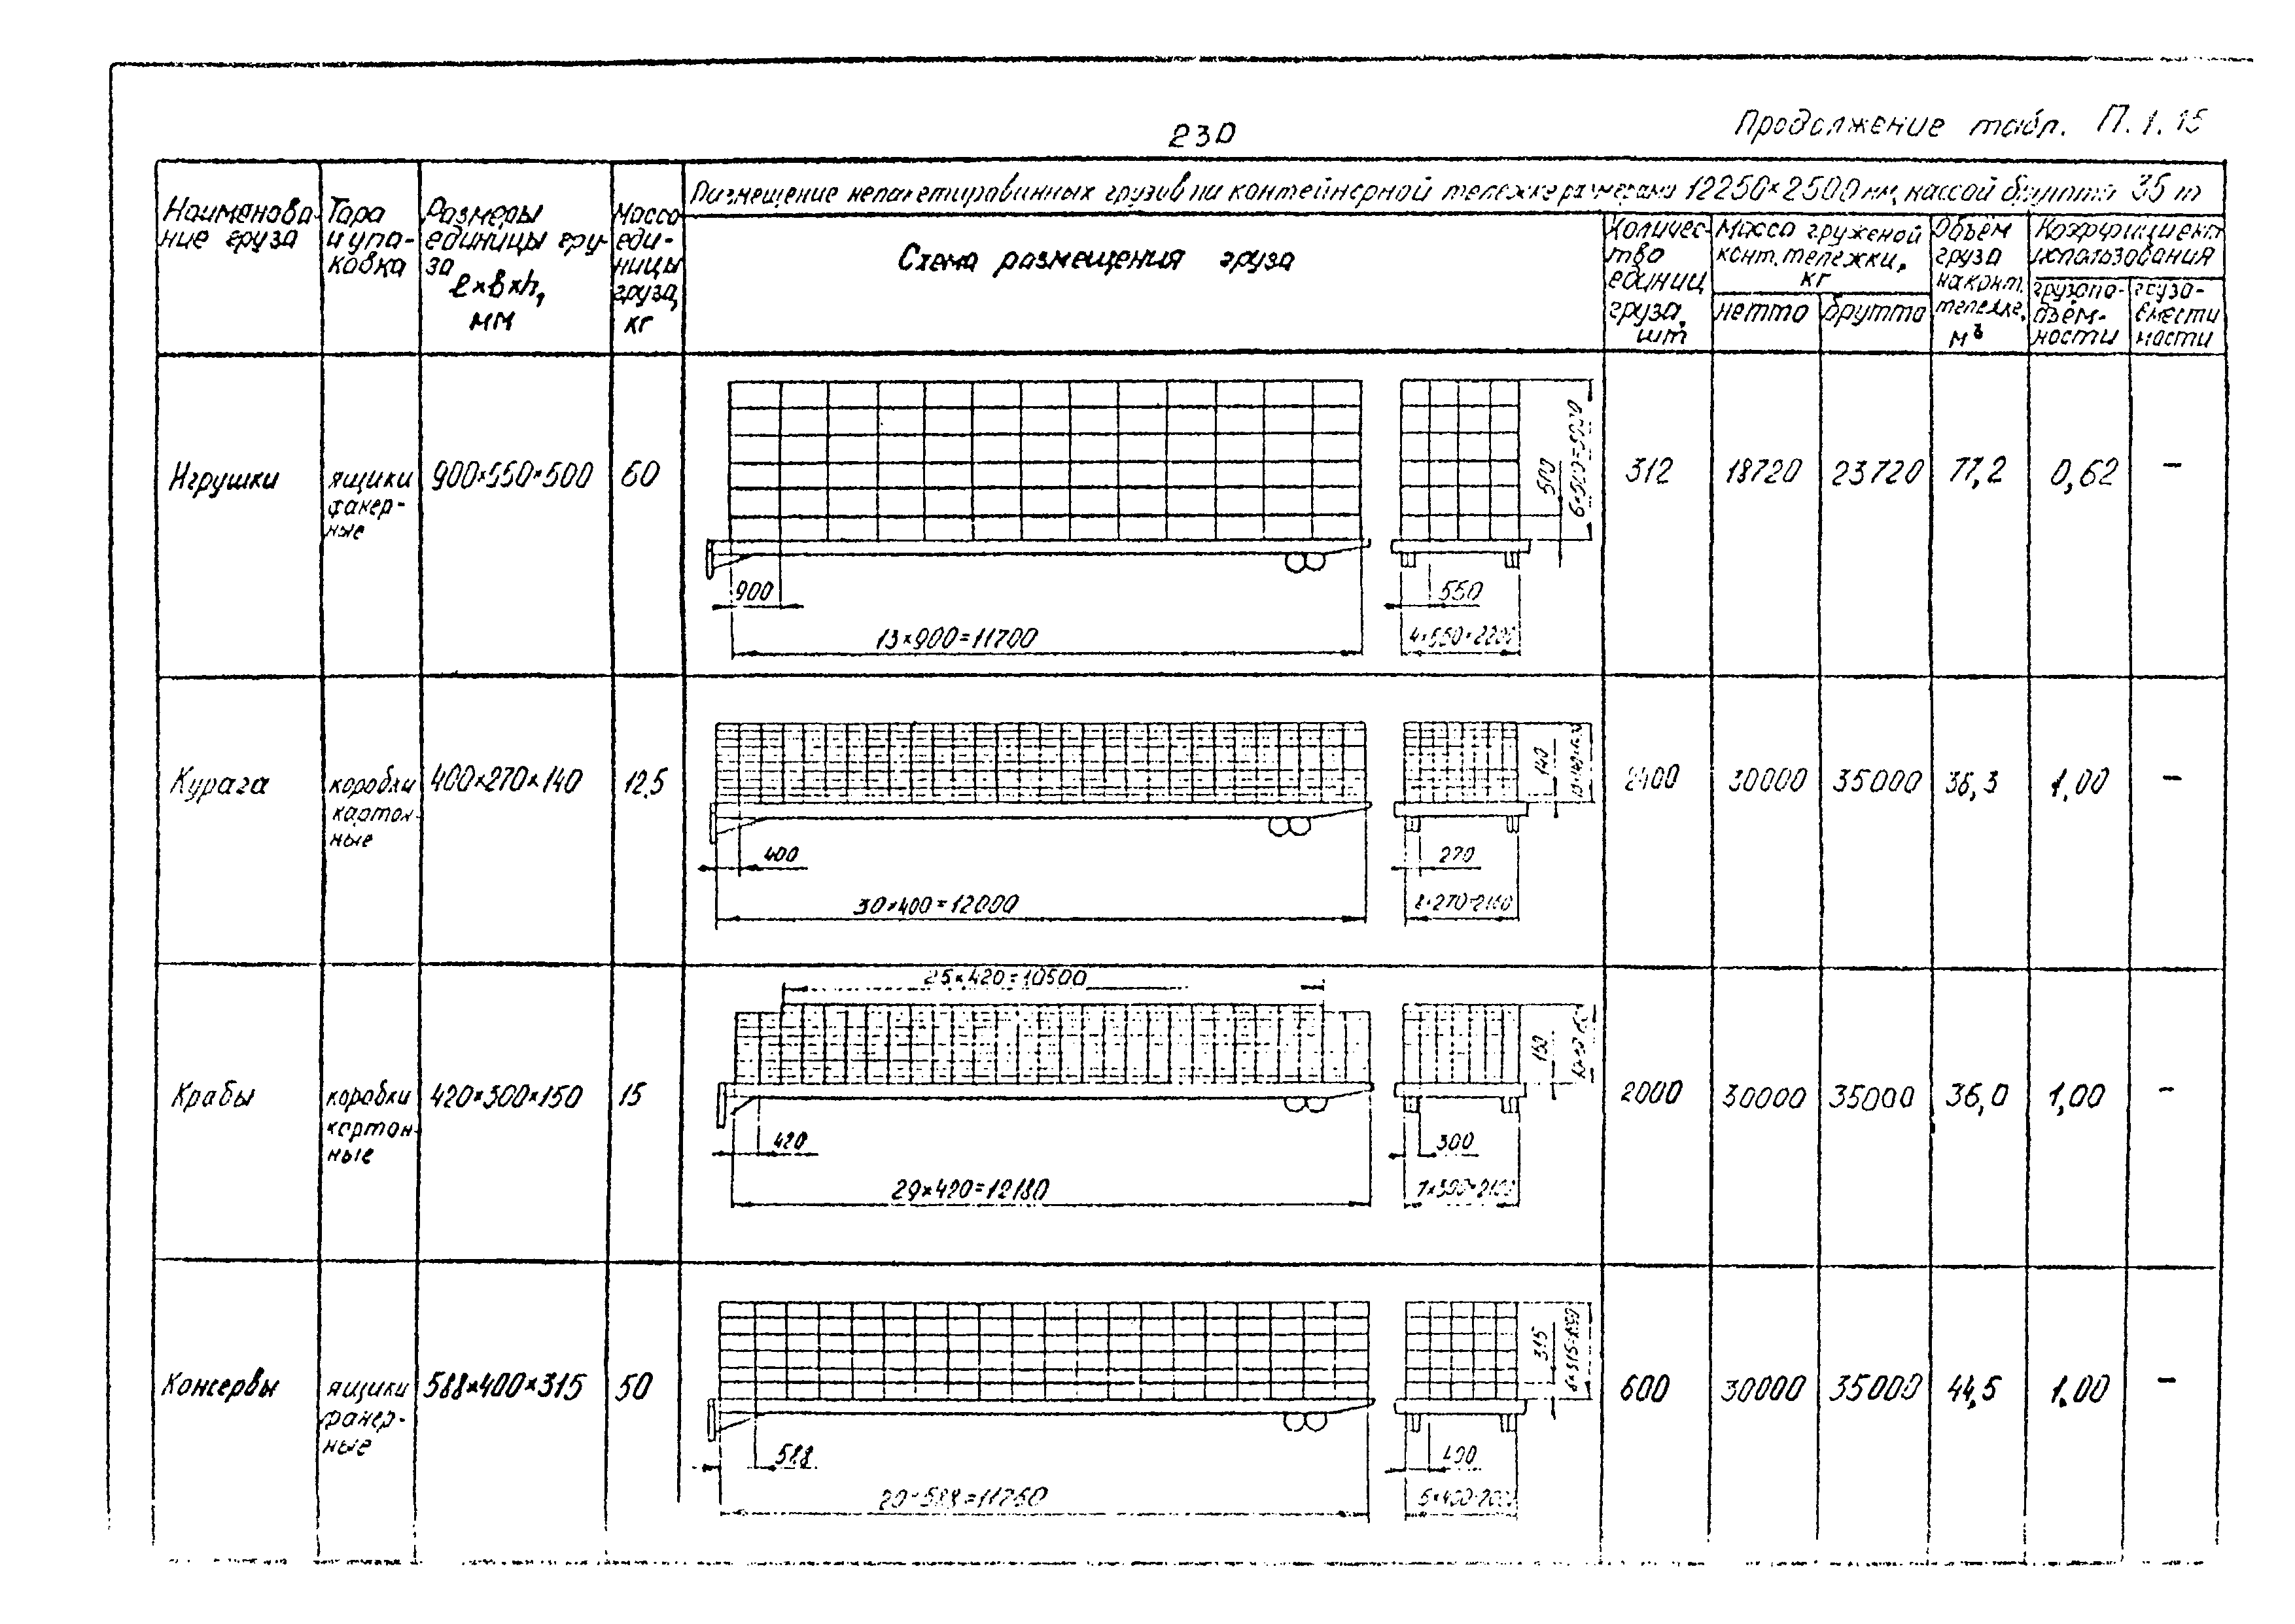 230
Продолжение табл. П.1.15
Наименова-
ние груза
Тара
и упа-
ковка
Размеры
единицы гру-
за
l×b×h,
мм
Масса
еди-
ницы
груза,
кг
Размещение непакетированных грузов на контейнерной тележке размерами 12250×2500 мм, массой брутто 35 т
Схема размещения груза
Количес-
тво
единиц
груза,
шт
Масса груженой
конт. тележки,
кг
нетто
брутто
Объем
груза
на конт.
тележке,
м³
Коэффициент
использования
грузопо-
дъем-
ности
грузо-
вмести
мости
Игрушки
ящики
фанер-
ные
900×550×500
60
900
13×900=11700
550
4×550=2200
500
6×500=3000
312
18720
23720
77,2
0,62
–
Курага
коробки
картон-
ные
400×270×140
12,5
400
30×400=12000
270
8×270=2160
140
2400
30000
35000
36,3
1,00
–
Крабы
коробки
картон-
ные
420×300×150
15
25×420=10500
420
29×420=12180
300
7×300=2100
150
2000
30000
35000
36,0
1,00
–
Консервы
ящики
фанер-
ные
588×400×315
50
588
20×588=11760
400
5×400=2000
315
6×315=1890
600
30000
35000
44,5
1.00
–